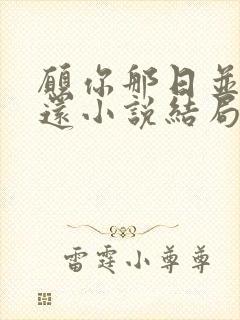 願你那日並
還小說結局
雷霆小尊尊